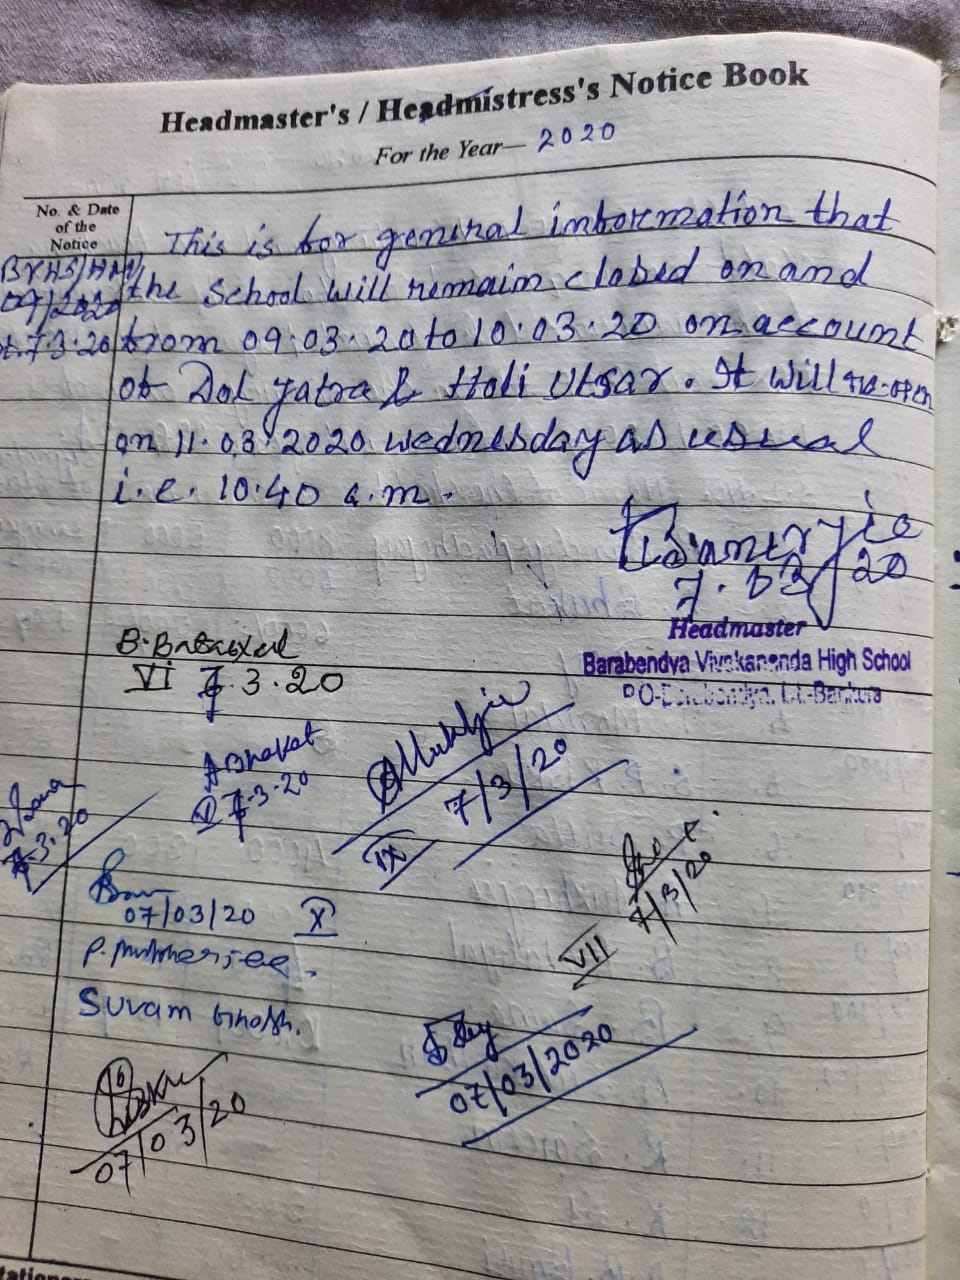 Headmaster's / Headmistress's Notice Book
For the Year— 2020
No. & Date
of the
Notice
BVHS/HM/
09/2020
dt. 7.3.20
This is for general information that
the School will remain closed on and
from 09.03.20 to 10.03.20 on account
of Dol yatra & Holi Utsav. It will re-open
on 11.03.2020 wednesday as usual
i.e. 10:40 a.m.
7.03.20
Headmaster
Barabendya Vivekananda High School
PO-Barabendya, Bankura
VI 7.3.20
A Bhakat
V 7-3-20
7/3/20
IX
7.3.20
07/03/20 X
7/3/20
VII
P. Mukherjee.
Suvam Ghosh.
07/03/2020
07/03/20